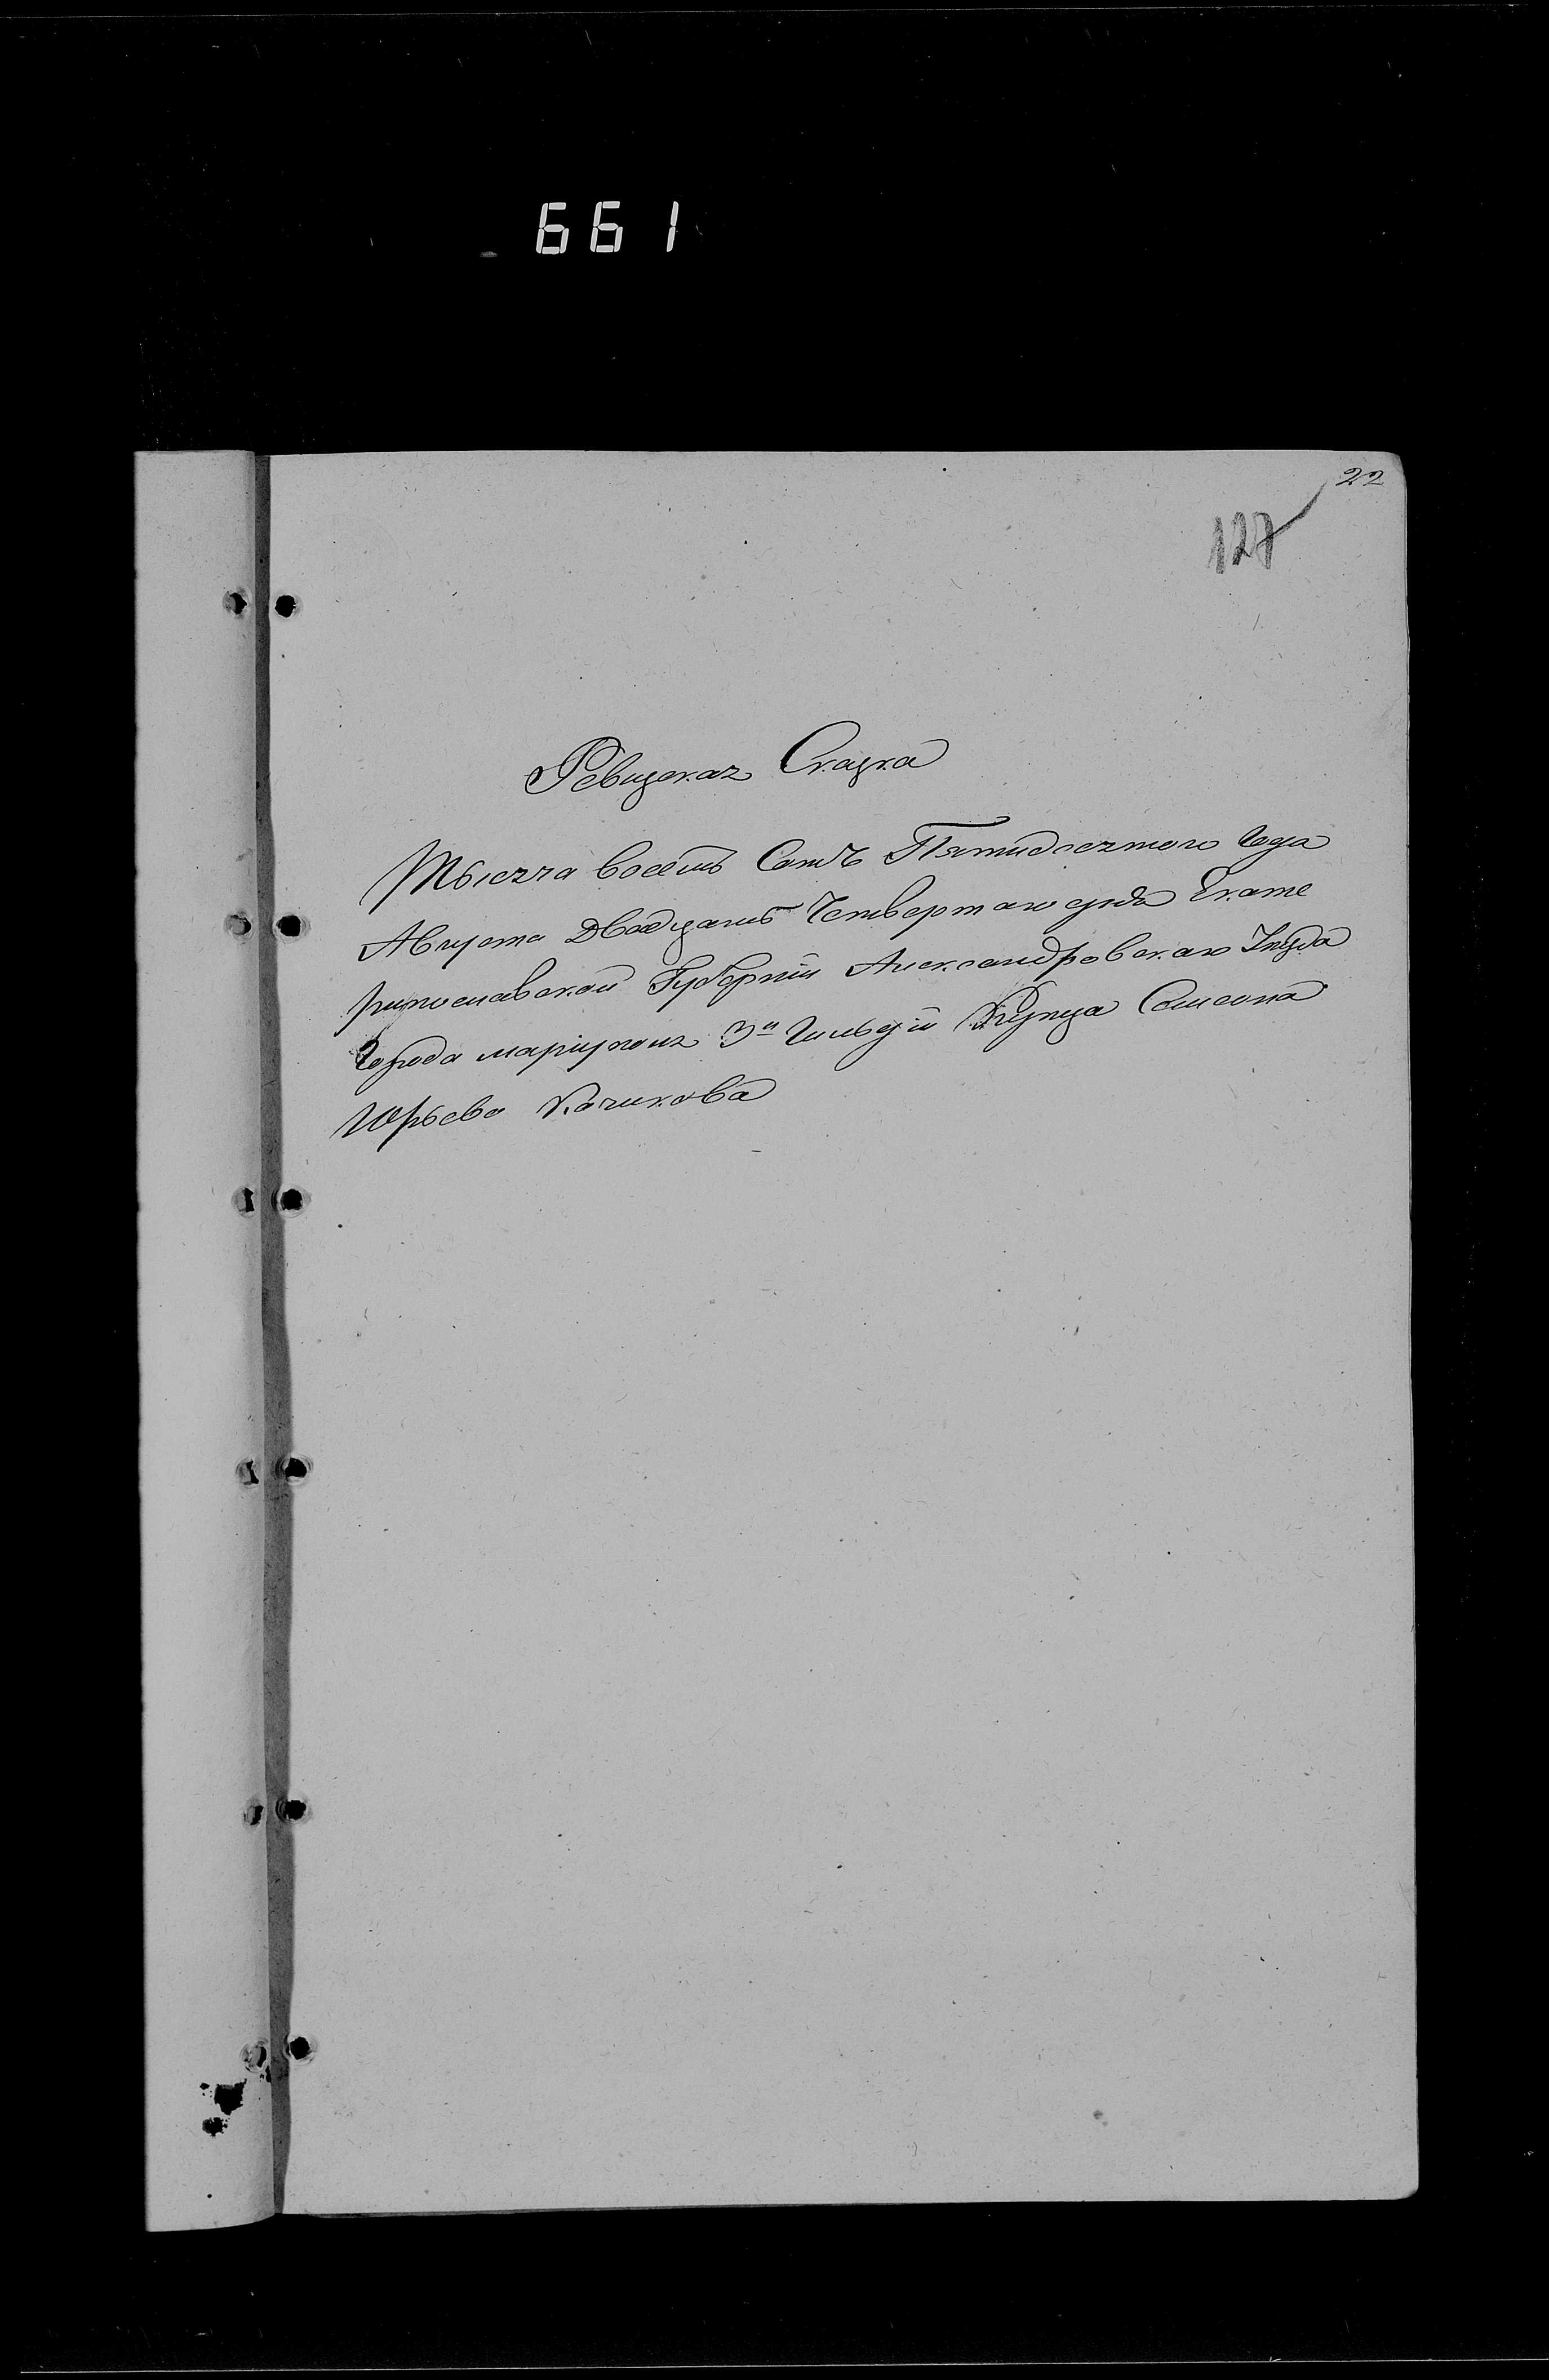 661
22
127
Ревизская Сказка
Тысяча восемь Сотъ Пятидесятого года
Августа Двадцать Четвертаго дня Екате
ринославской Губерніи Александровскаго Уезда
Города мариуполя 3й Гильдіи Купца Самсона
Юрьева